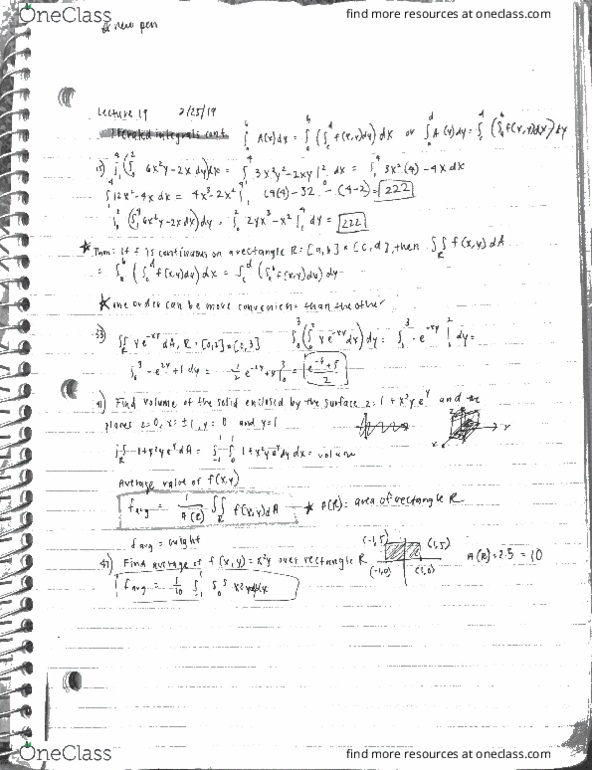 OneClass
find more resources at oneclass.com
* new pen
Lecture 19 2/25/19
Iterated integrals cont.
∫ₐᵇ A(x)dx = ∫ₐᵇ (∫_c^d f(x,y)dy) dx or ∫_c^d A(y)dy = ∫_c^d (∫ₐᵇ f(x,y)dx) dy
15) ∫₁⁴ (∫₀² 6x²y-2x dy)dx = ∫₁⁴ 3x²y²-2xy|₀² dx = ∫₁⁴ 3x²(4)-4x dx
∫₁⁴ 12x²-4x dx = 4x³-2x²|₁⁴ 64(4)-32-(4-2)=222
∫₀² (∫₁⁴ 6x²y-2x dx)dy = ∫₀² 2yx³-x²|₁⁴ dy = 222
* Thm: if f is continuous on a rectangle R=[a,b]×[c,d], then ∬_R f(x,y)dA
= ∫ₐᵇ (∫_c^d f(x,y)dy)dx = ∫_c^d (∫ₐᵇ f(x,y)dx)dy
* one order can be more convenient than the other
33) ∬_R ye^-xy dA, R=[0,2]×[0,3] ∫₀³ (∫₀² ye^-xy dx)dy = ∫₀³ -e^-xy |₀² dy =
∫₀³ -e^-2y+1 dy = e^-6+5 / 2
41) Find volume of the solid enclosed by the surface z=1+x²ye^y and the
planes z=0, x=±1, y=0 and y=1
∬_R 1+x²ye^y dA = ∫₋₁¹ ∫₀¹ 1+x²ye^y dy dx = volume
Average value of f(x,y)
f avg = 1/A(R) ∬_R f(x,y)dA * A(R)= area of rectangle R
f avg = height
47) Find average of f(x,y)=x²y over rectangle R
(-1,5) (1,5) (-1,0) (1,0)
A(R)=2·5=10
f avg = 1/10 ∫₋₁¹ ∫₀⁵ x²y dy dx
OneClass
find more resources at oneclass.com